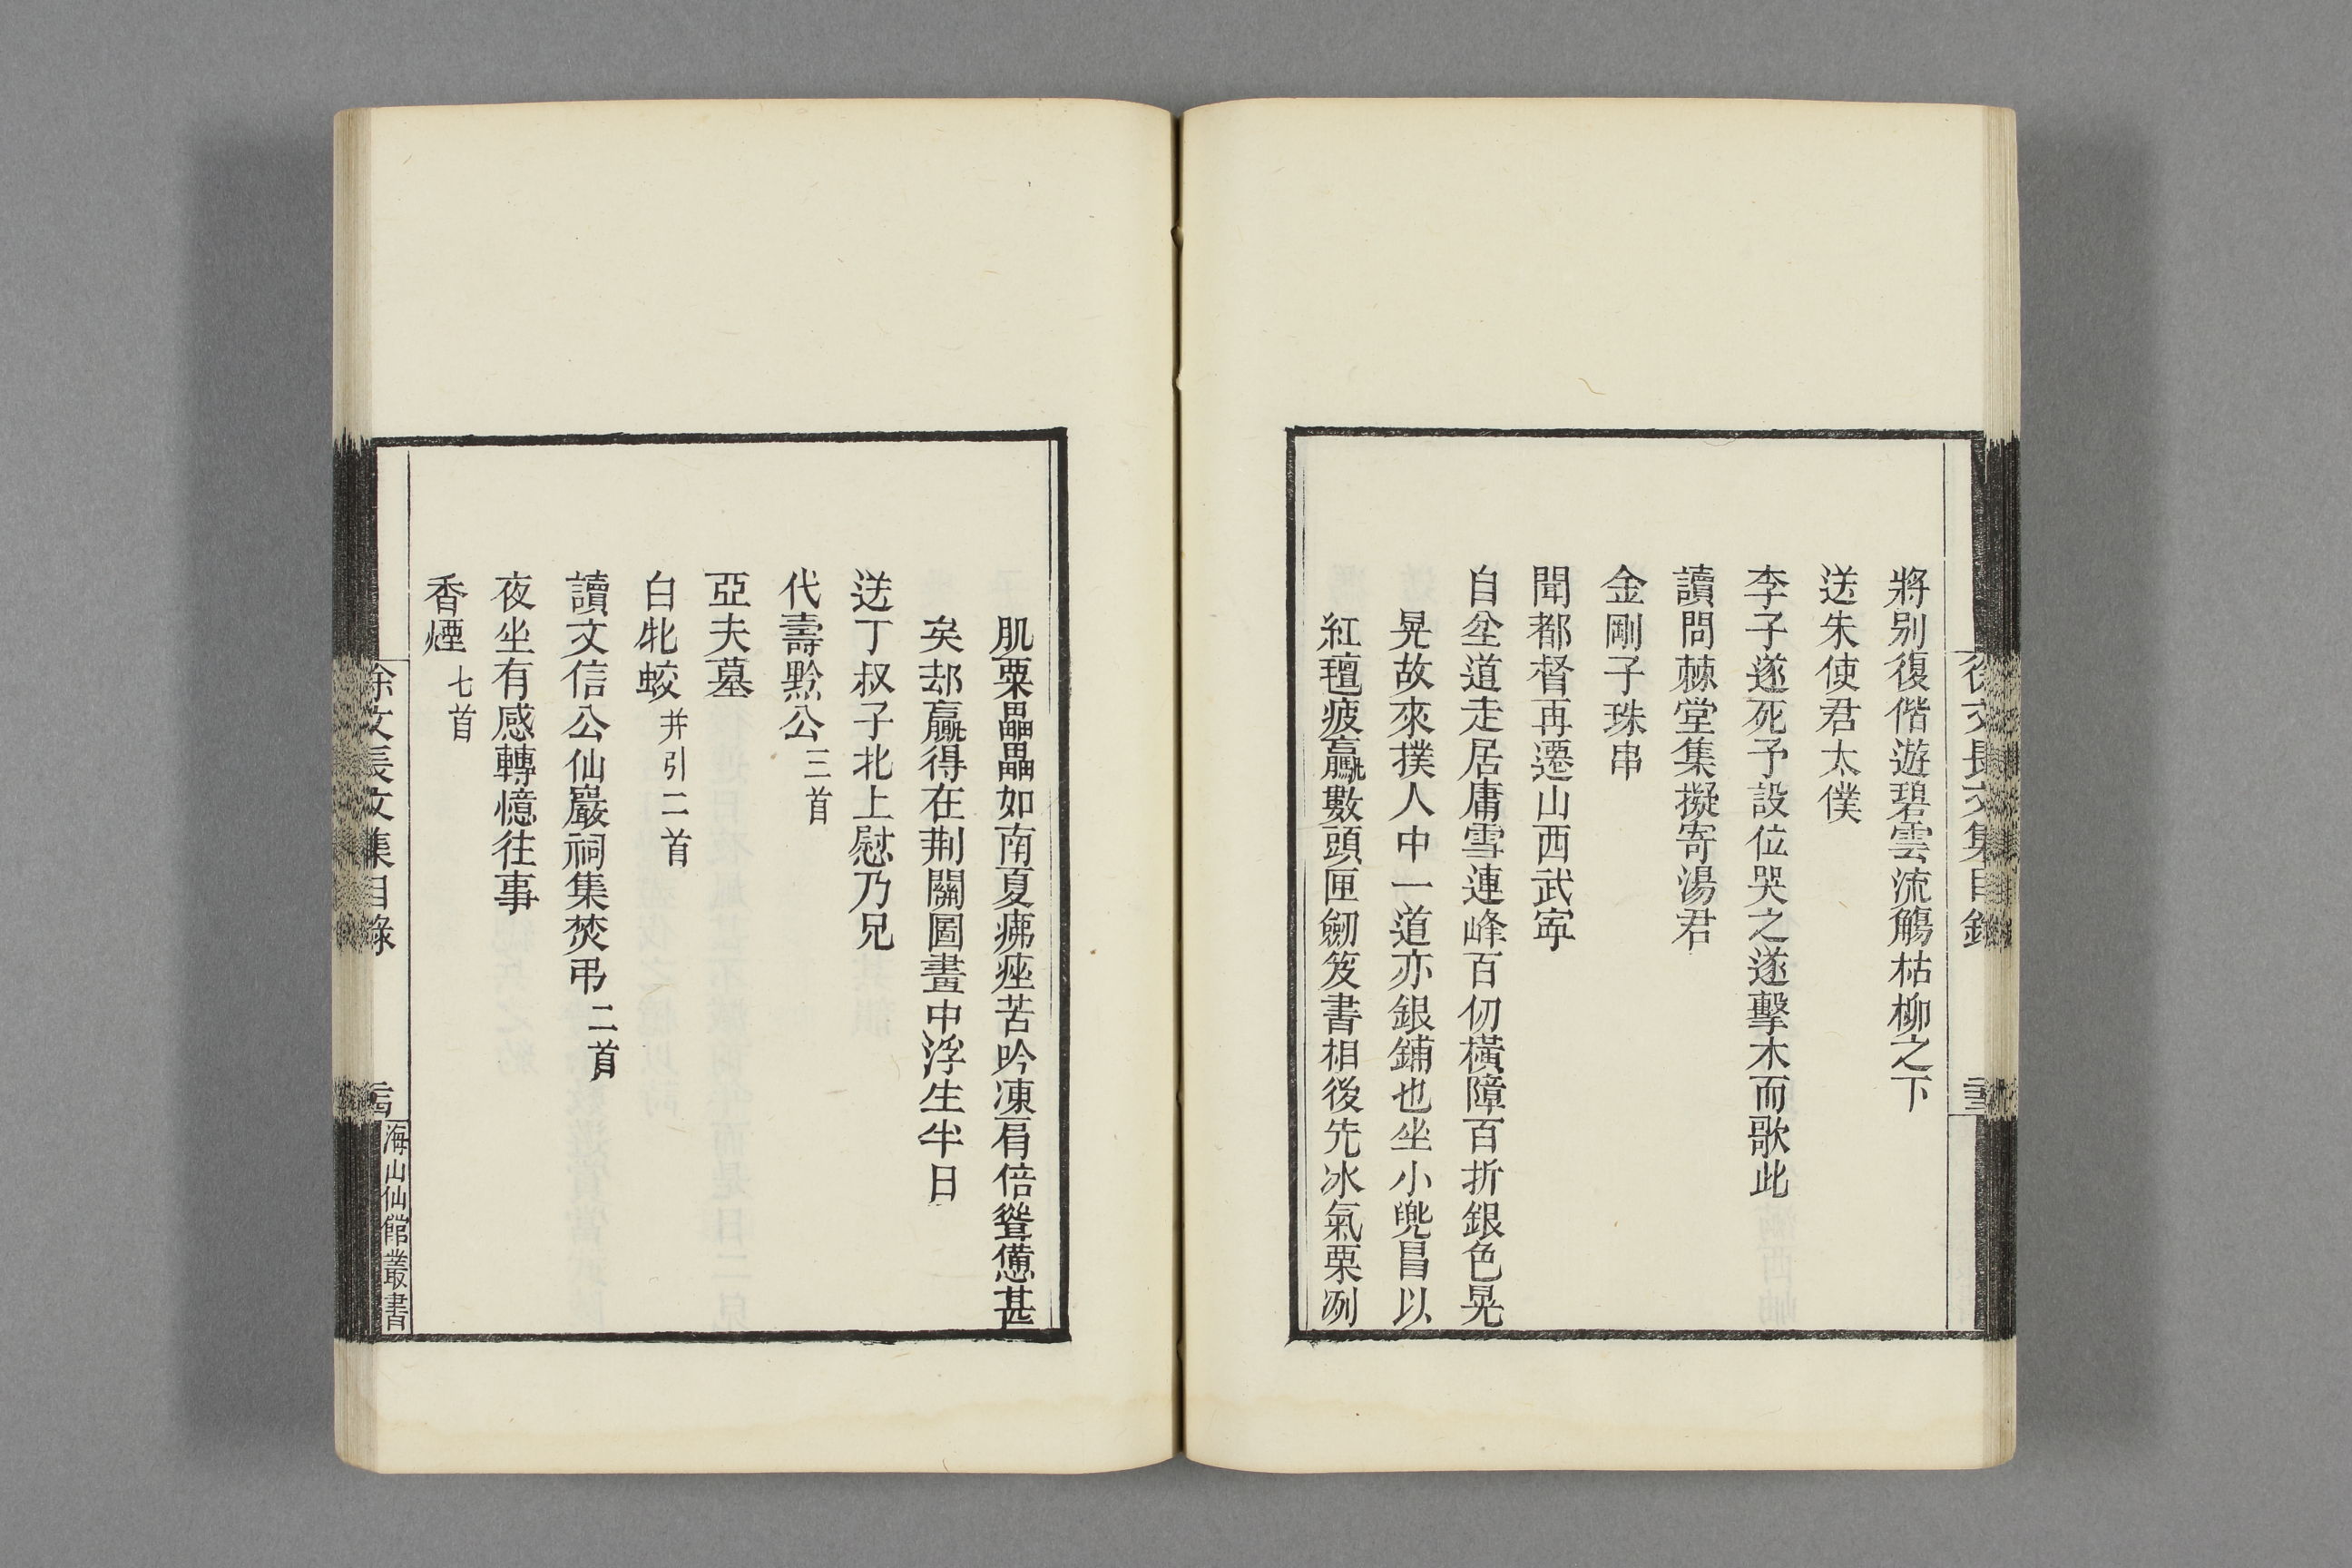 將别復偕遊碧雲流觴枯柳之下
送朱使君太僕
李子遂死予設位哭之遂擊木而歌此
讀問棘堂集擬寄湯君
金剛子珠串
聞都督再遷山西武寧
自岔道走居庸雪連峰百仞橫障百折銀色晃
晃故來撲人中一道亦銀鋪也坐小兜冒以
紅氊疲羸數頭匣劒笈書相後先冰氣栗冽
肌粟畾畾如南夏疿痤苦吟凍肩倍聳憊甚
矣却羸得在荆關圖畫中浮生半日
送丁叔子北上慰乃兄
代壽黔公三首
亞夫墓
白牝蛟并引二首
讀文信公仙巖祠集焚弔二首
夜坐有感轉憶往事
香煙七首
徐文長文集目錄
海山仙館叢書